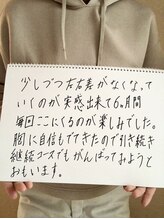 少しづつ左右差がなくなって
いくのが実感出来て6ヶ月間
毎回ここにくるのが楽しみでした。
胸に自信もでてきたので引き続き
継続コースでもがんばっておようと
おもいます。